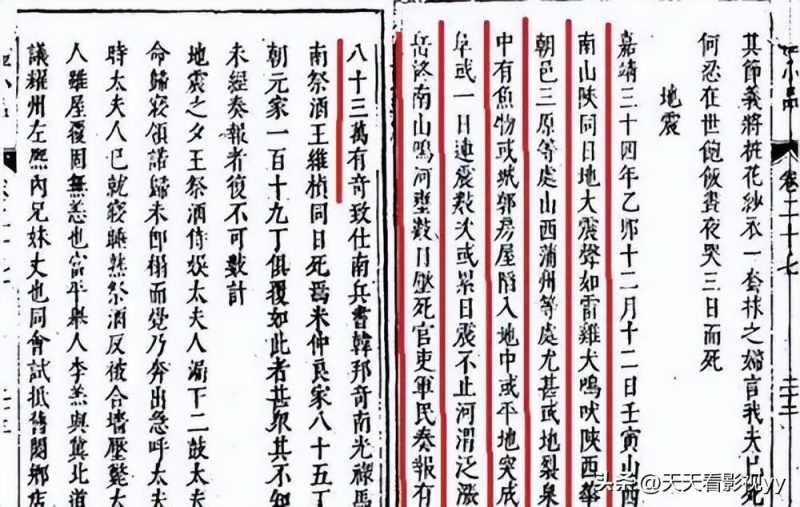 小品
卷二十七
二十三
其節義將桩花紗衣一套抹之婦言我夫已死
何忍在世飽飯晝夜哭三日而死
地震
嘉靖三十四年乙卯十二月十二日壬寅山西
南山陝同日地大震聲如雷雞犬鳴吠陝西華
朝邑三原等處山西蒲州等處尤甚或地裂泉
中有魚物或城郭房屋陷入地中或平地突成
阜或一日連震數次或累日震不止河渭泛漲
岳終南山鳴河壅數日壓死官吏軍民奏報有
八十三萬有奇致仕南兵書韓邦奇南光祿馬
南祭酒王維楨同日死焉米仲良家八十五丁
朝元家一百十九丁俱覆如此者甚眾其不知
未經奏報者復不可數計
地震之夕王祭酒侍娛太夫人漏下二鼓太夫
命歸寢領諾歸未即榻而覺乃奔出急呼太夫
時太夫人已就寢睡熟祭酒反被合墻壓斃太
人雖屋覆固無恙也富平舉人李羔與冀北道
議耀州左熙內兄妹丈也同會試抵舊閿鄉店
头条@天天看影视yy